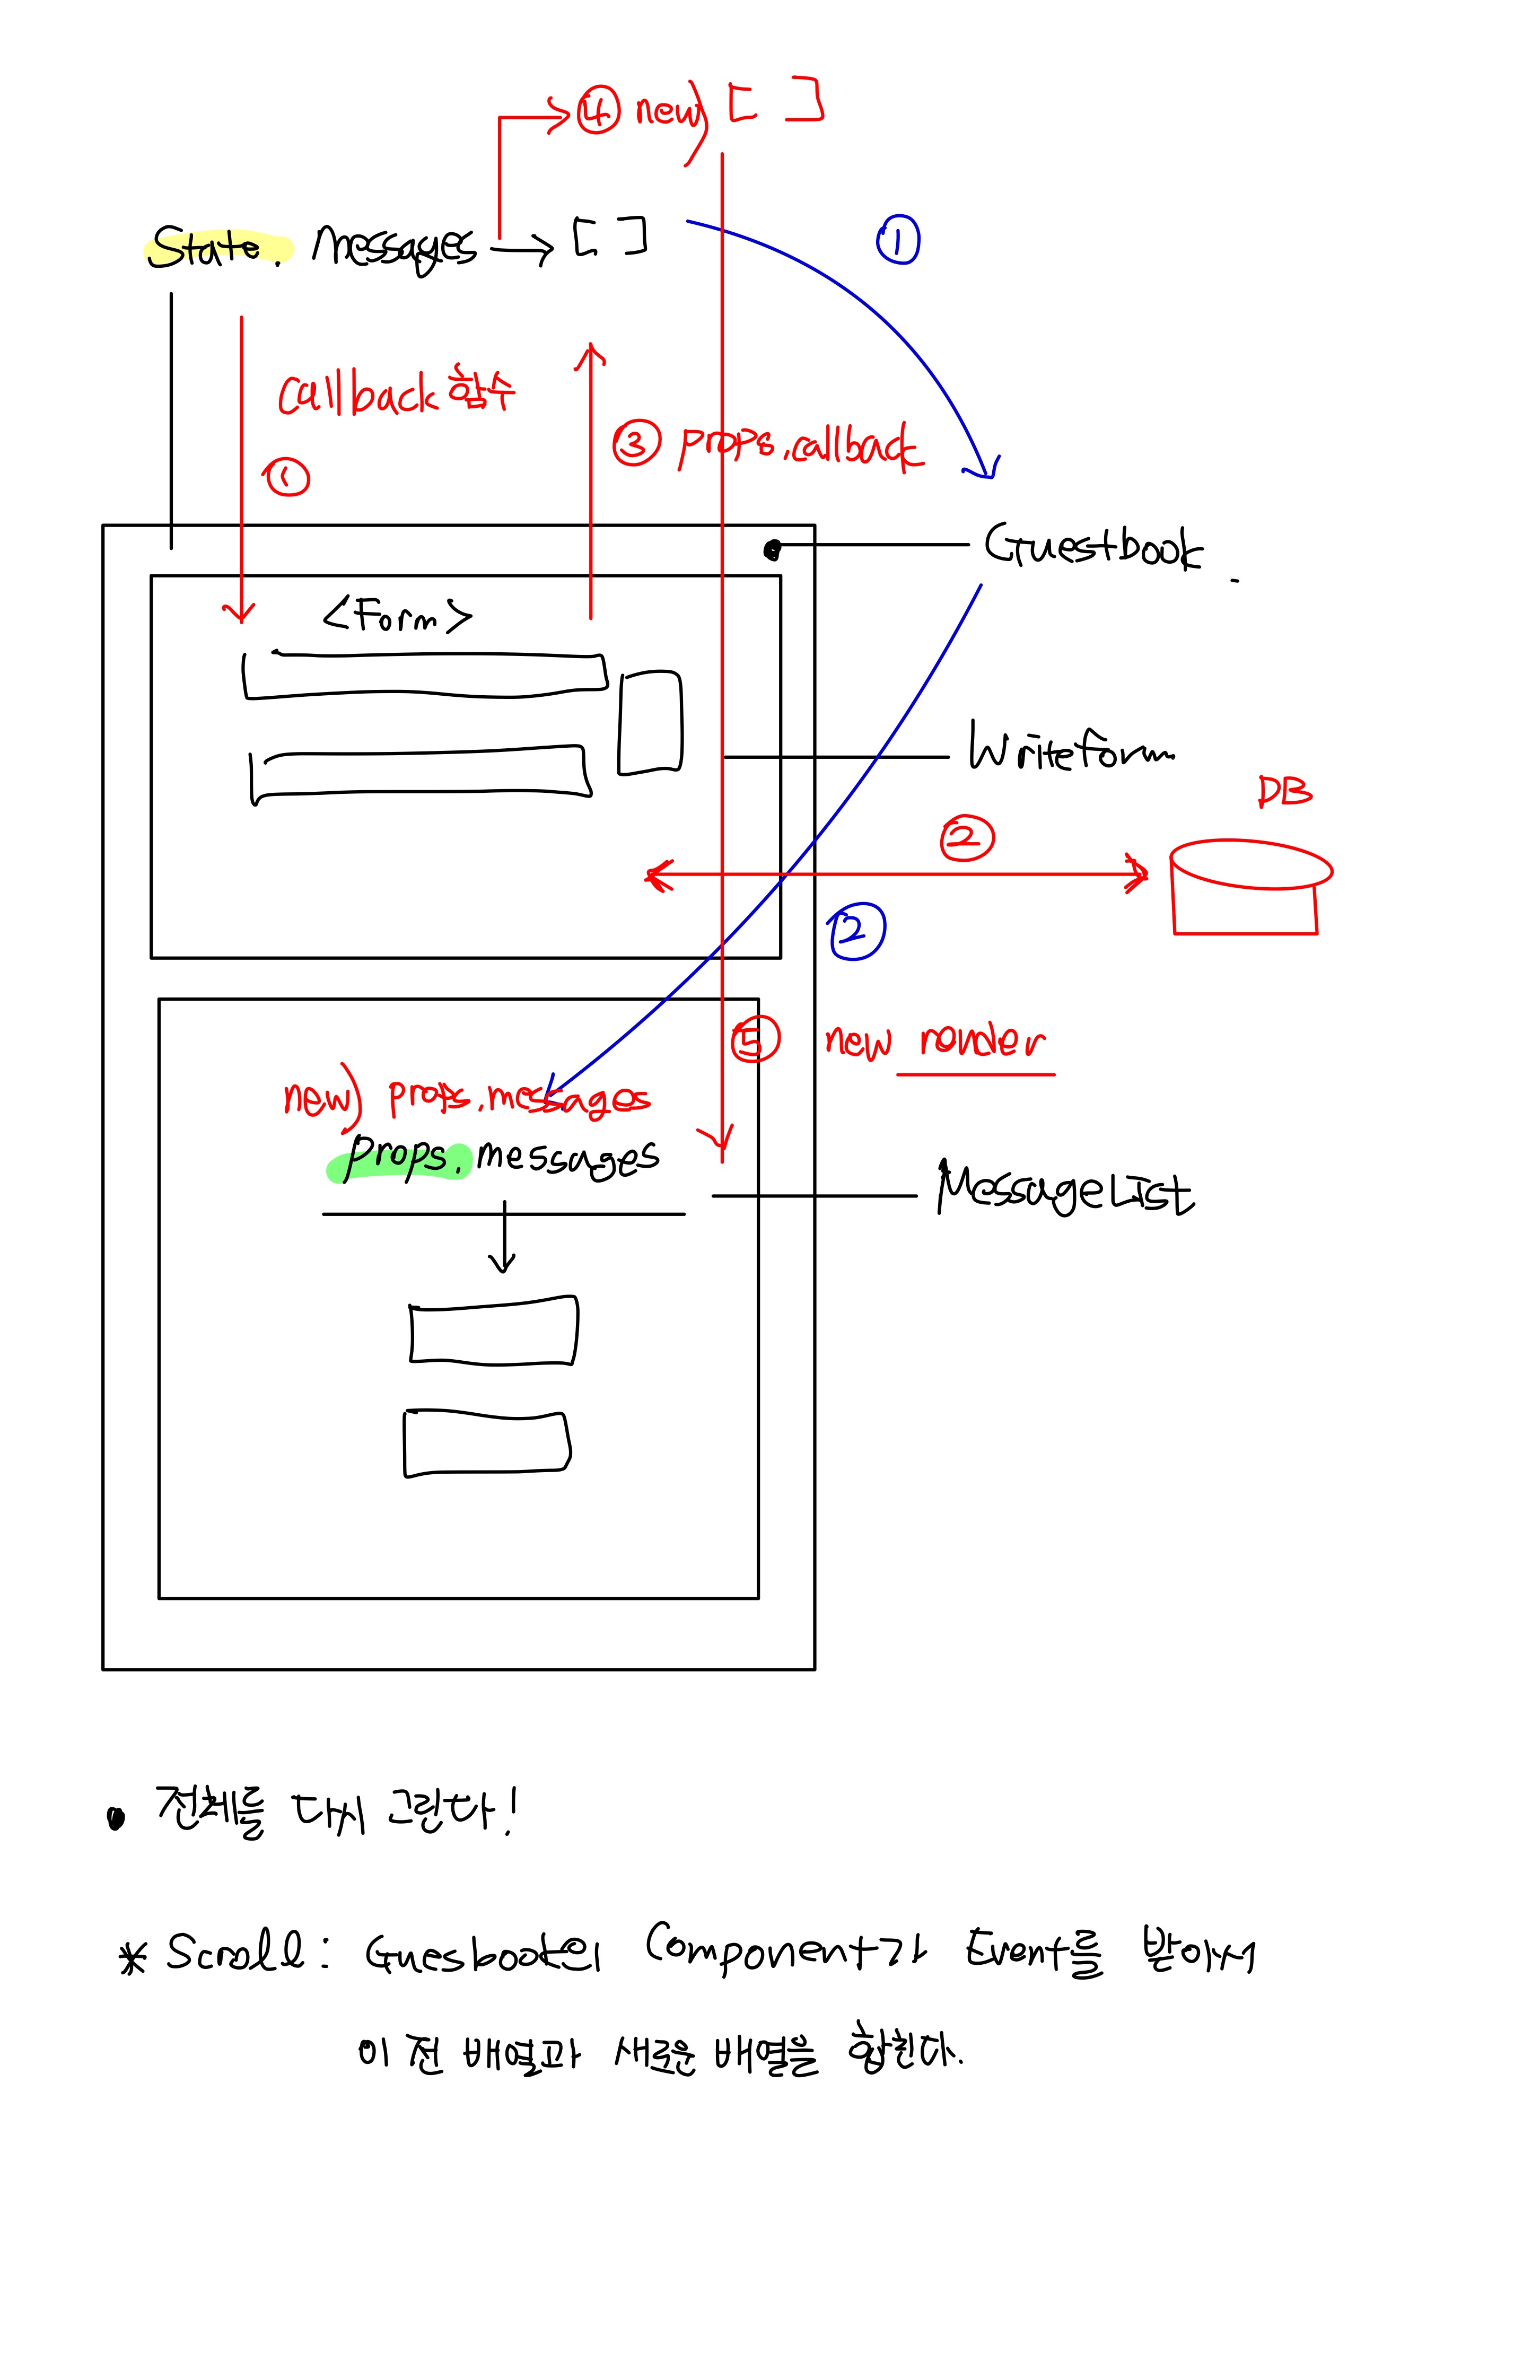 ④ new) [ ]
State. Messages → [ ]
①
callback 함수
①
③ props.callback
Guestbook.
<Form>
Writeform
DB
②
②
⑤ new render
new) props.messages
props.messages
MessageList
• 전체를 다시 그린다!
* Scroll : Guesbook의 Component가 Event를 받아서
이전 배열과 새로운 배열을 합친다.